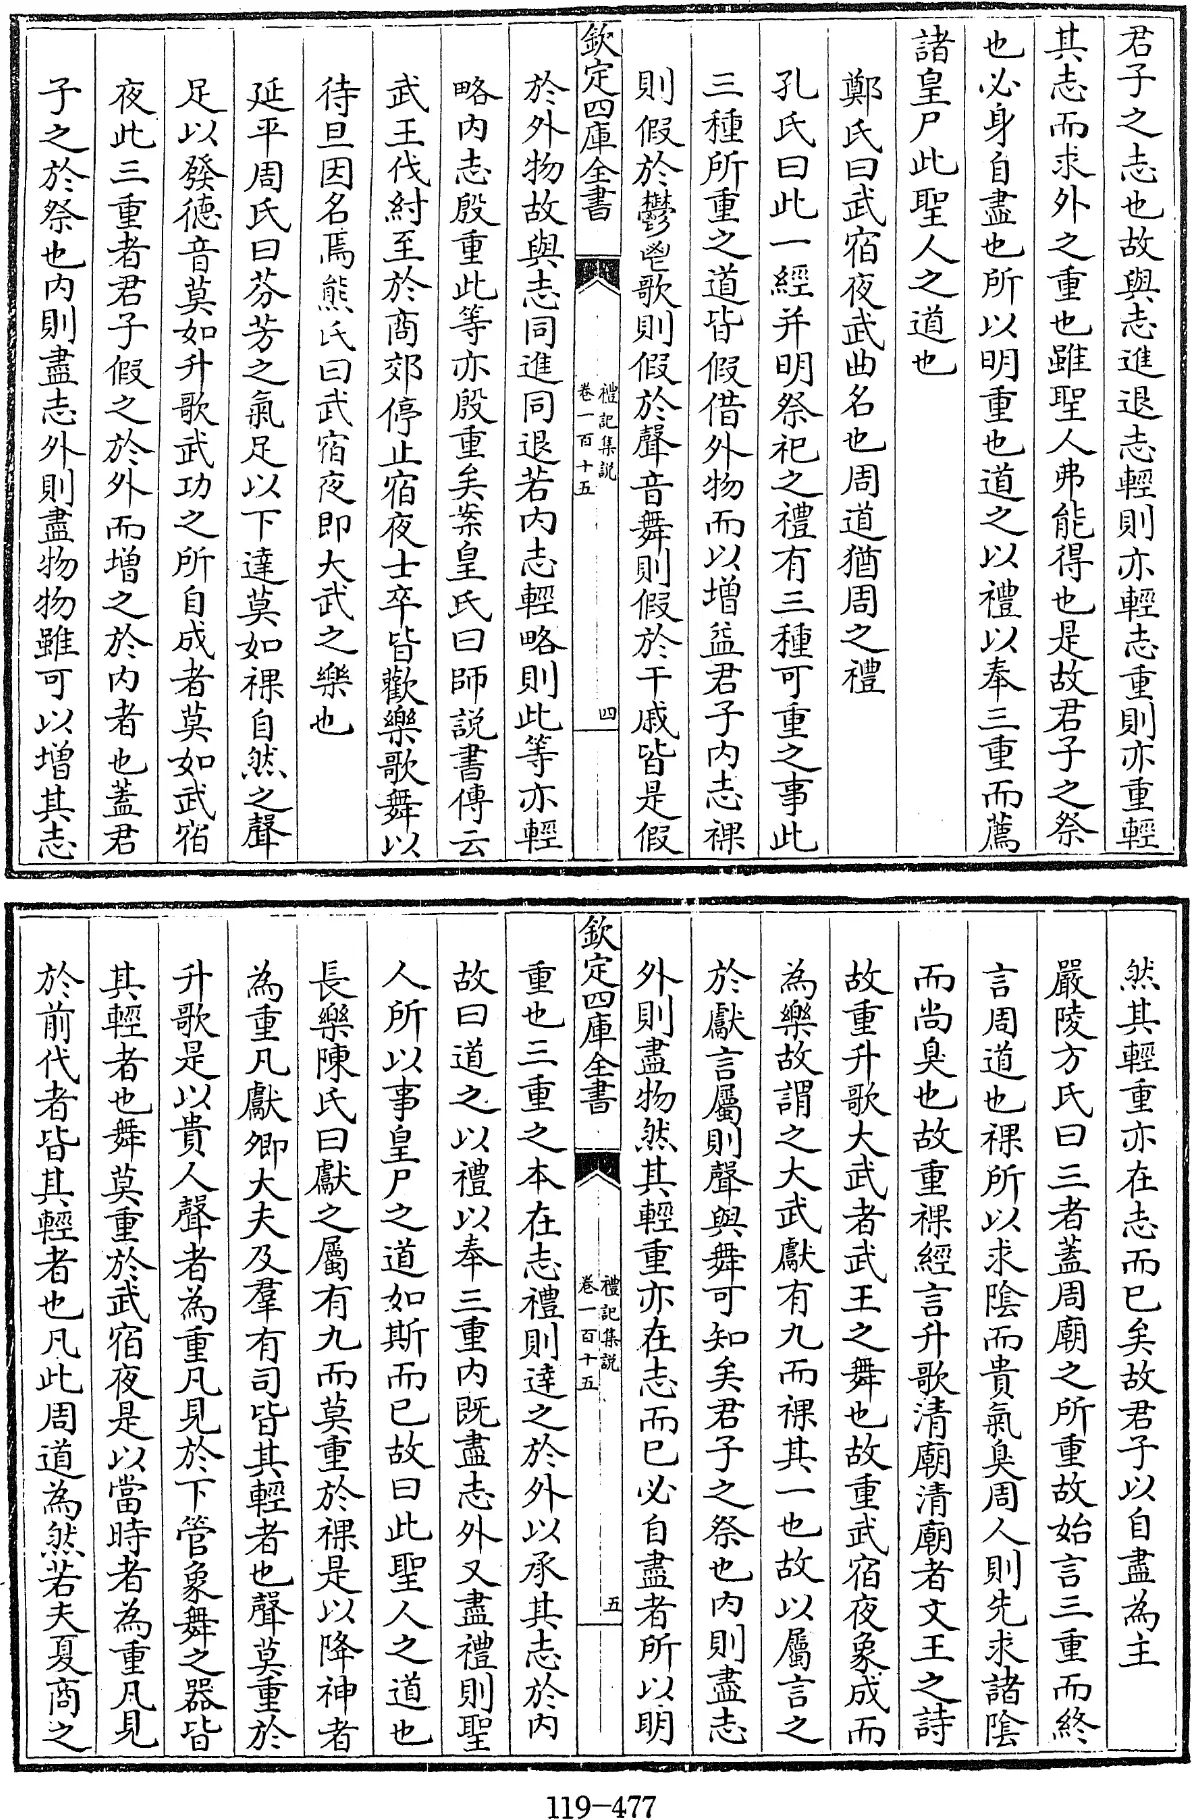 君子之志也故與志進退志輕則亦輕志重則亦重輕
其志而求外之重也雖聖人弗能得也是故君子之祭
也必身自盡也所以明重也道之以禮以奉三重而薦
諸皇尸此聖人之道也
鄭氏曰武宿夜武曲名也周道猶周之禮
孔氏曰此一經并明祭祀之禮有三種可重之事此
三種所重之道皆假借外物而以增益君子内志祼
則假於鬱鬯歌則假於聲音舞則假於干戚皆是假
欽定四庫全書
禮記集說
卷一百十五
四
於外物故與志同進同退若内志輕略則此等亦輕
略内志殷重此等亦殷重矣案皇氏曰師説書傳云
武王伐紂至於商郊停止宿夜士卒皆歡樂歌舞以
待旦因名焉熊氏曰武宿夜即大武之樂也
延平周氏曰芬芳之氣足以下達莫如祼自然之聲
足以發德音莫如升歌武功之所自成者莫如武宿
夜此三重者君子假之於外而增之於内者也蓋君
子之於祭也内則盡志外則盡物物雖可以增其志
然其輕重亦在志而已矣故君子以自盡為主
嚴陵方氏曰三者蓋周廟之所重故始言三重而終
言周道也祼所以求陰而貴氣臭周人則先求諸陰
而尚臭也故重祼經言升歌清廟清廟者文王之詩
故重升歌大武者武王之舞也故重武宿夜象成而
為樂故謂之大武獻有九而祼其一也故以屬言之
於獻言屬則聲與舞可知矣君子之祭也内則盡志
外則盡物然其輕重亦在志而已必自盡者所以明
欽定四庫全書
禮記集說
卷一百十五
五
重也三重之本在志禮則達之於外以承其志於内
故曰道之以禮以奉三重内既盡志外又盡禮則聖
人所以事皇尸之道如斯而已故曰此聖人之道也
長樂陳氏曰獻之屬有九而莫重於祼是以降神者
為重凡獻卿大夫及羣有司皆其輕者也聲莫重於
升歌是以貴人聲者為重凡見於下管象舞之器皆
其輕者也舞莫重於武宿夜是以當時者為重凡見
於前代者皆其輕者也凡此周道為然若夫夏商之
119-477